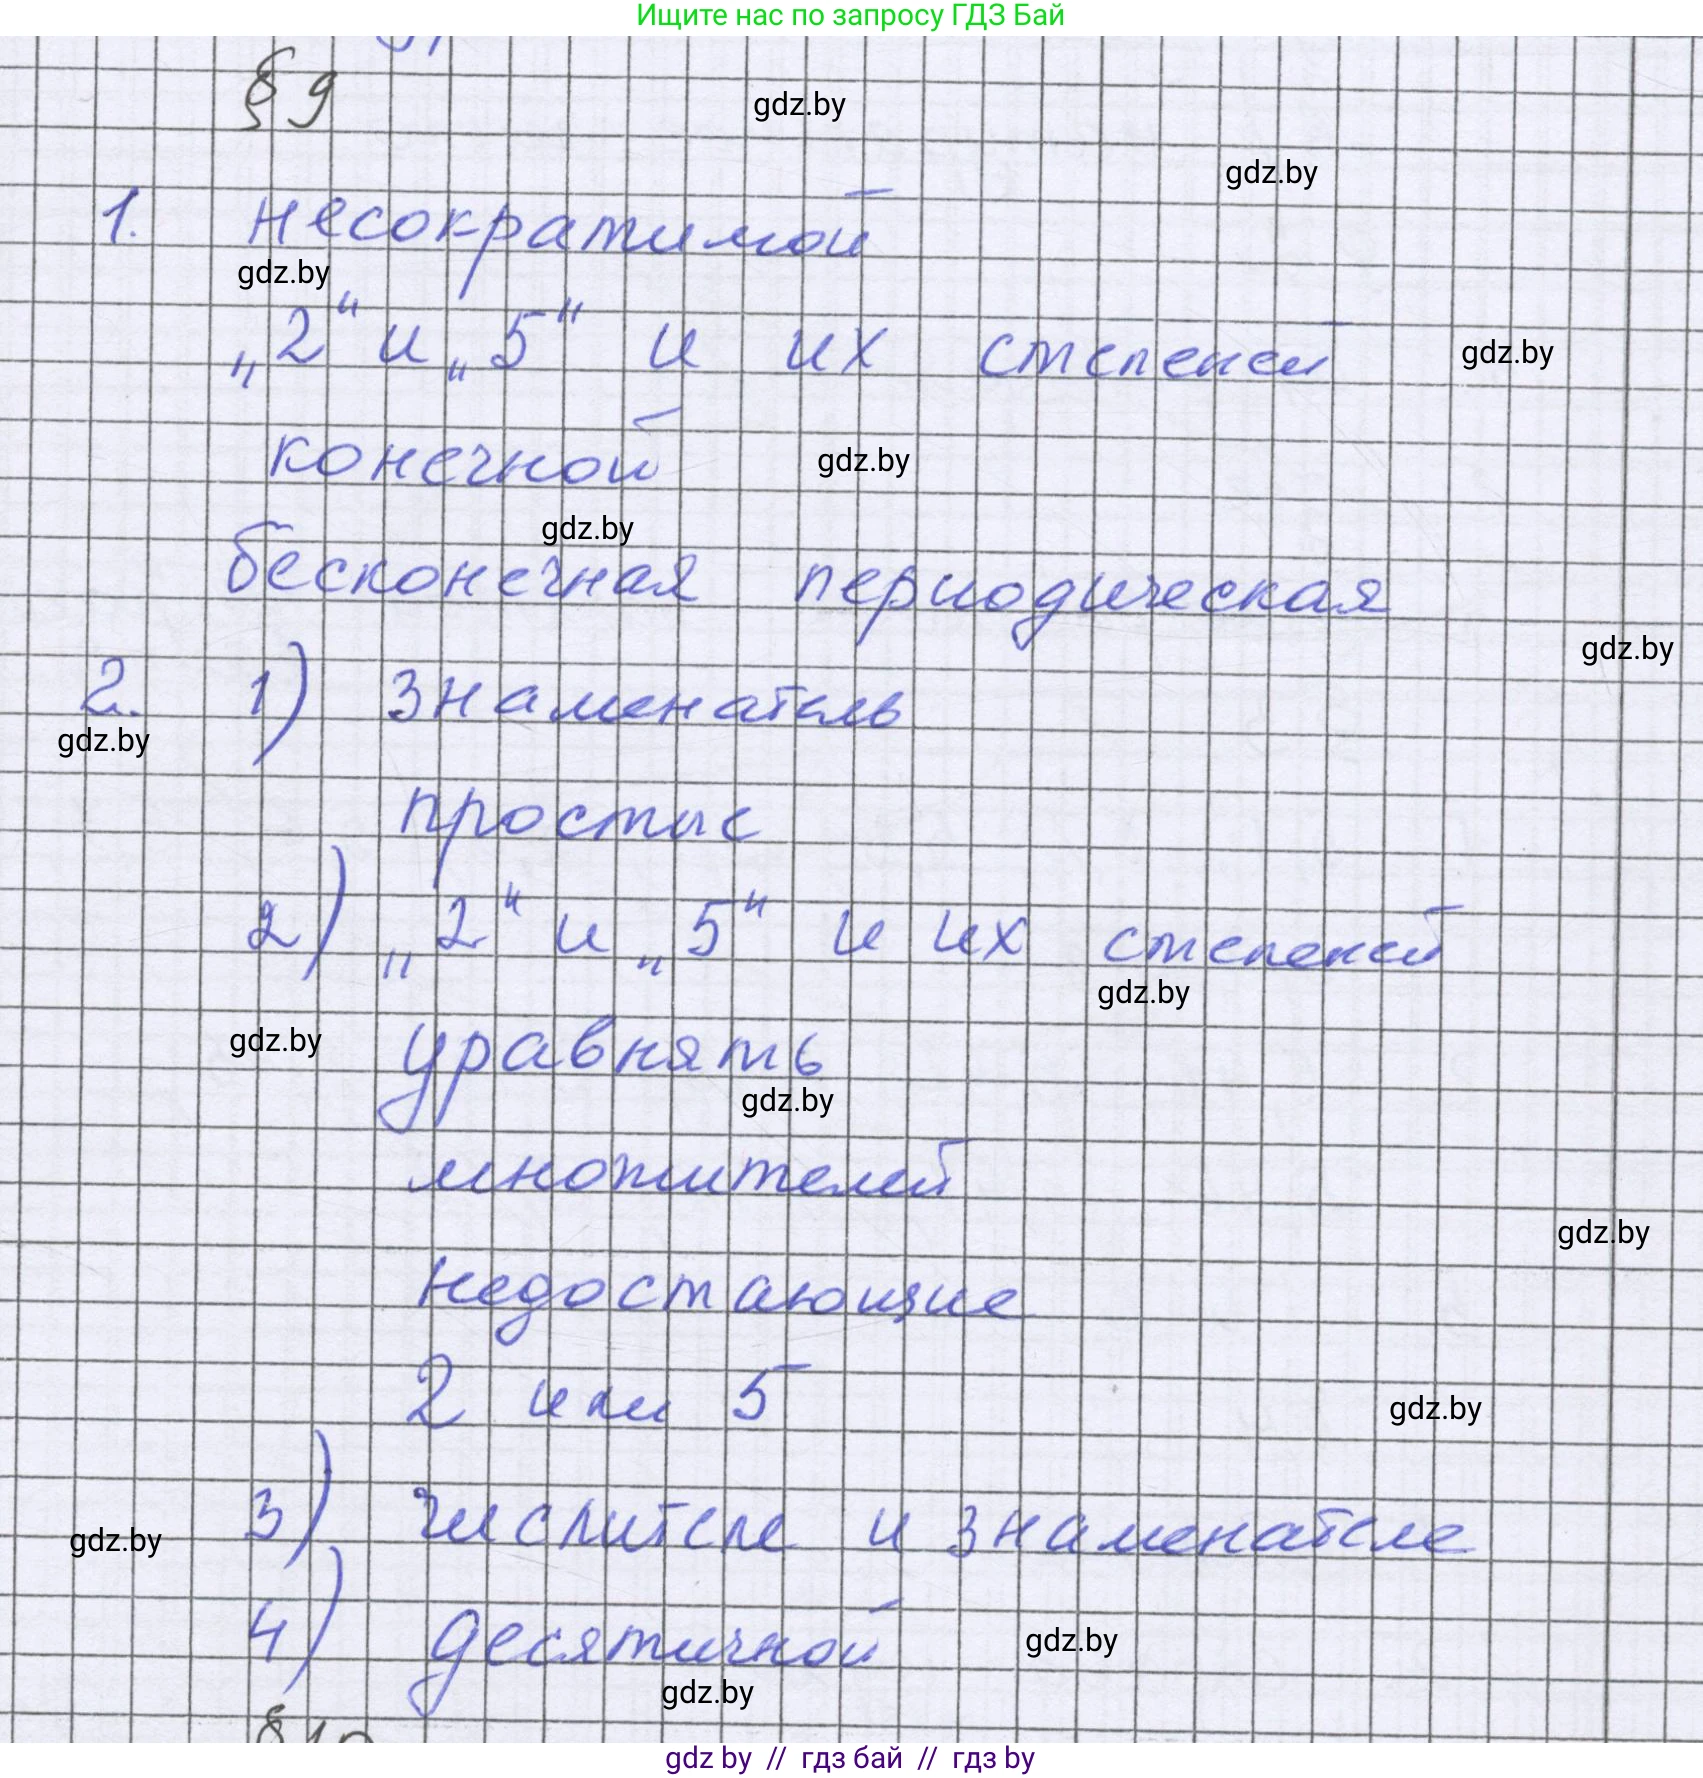 Ищите нас по запросу ГДЗ Бай
§ 9
gdz.by
gdz.by
1. несократимой
gdz.by
„2“ и „5“ и их степеней
gdz.by
конечной
gdz.by
gdz.by
бесконечная периодическая
gdz.by
2. 1) знаменатель
gdz.by
простые
2) „2“ и „5“ и их степеней
gdz.by
gdz.by
уравнять
gdz.by
множителей
gdz.by
недостающие
2 или 5
gdz.by
3) числителе и знаменателе
gdz.by
4) десятичной
gdz.by
gdz.by
§10
gdz by // гдз бай // гдз by